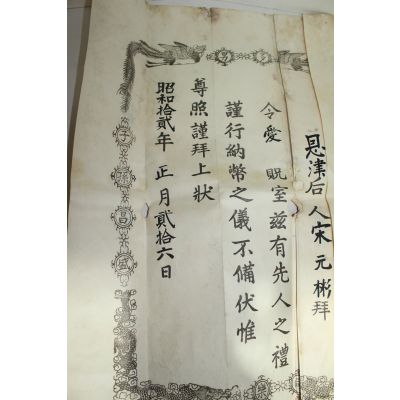 恩津后人宋元彬拜
令愛 貺室玆有先人之禮
謹行納幣之儀不備伏惟
尊照謹拜上狀
昭和拾貳年 正月貳拾六日
子孫昌盛